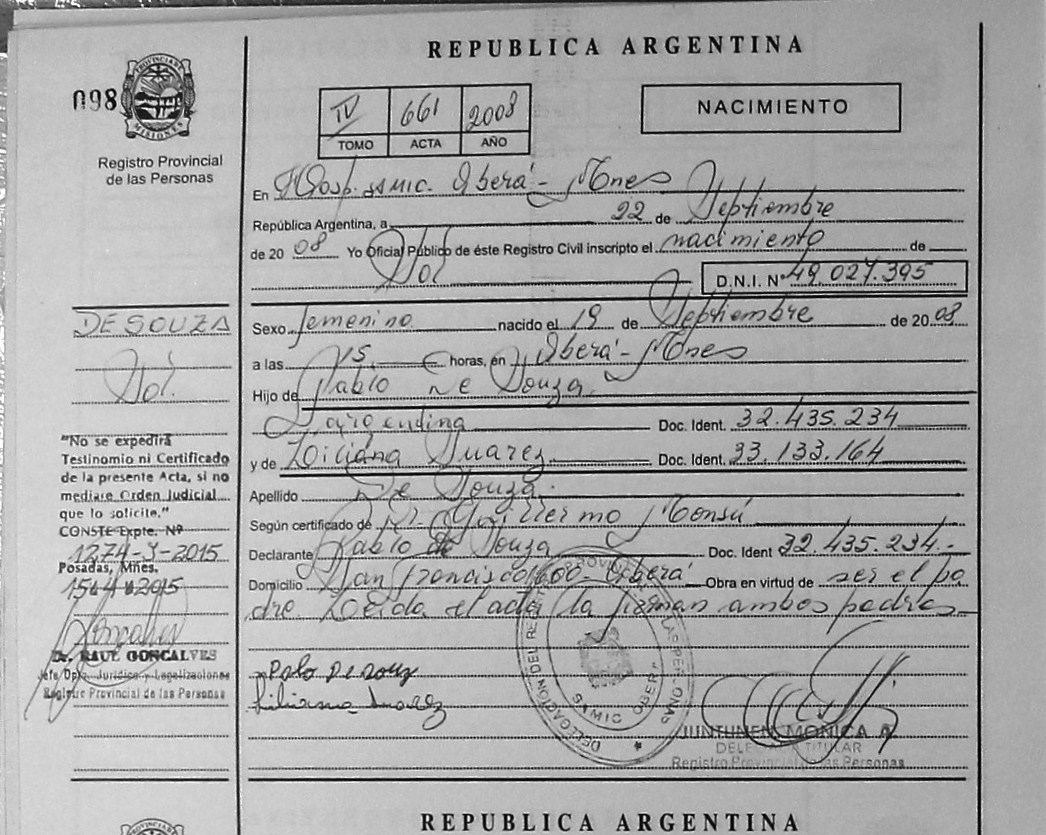 REPUBLICA ARGENTINA
098
PROVINCIA DE MISIONES
Registro Provincial
de las Personas
IV 661 2008
TOMO ACTA AÑO
NACIMIENTO
En Hosp. SAMIC. Oberá - Mnes
República Argentina, a 22 de Septiembre
de 2008 Yo Oficial Público de éste Registro Civil inscripto el nacimiento de
Sol D.N.I. Nº 49.027.395
DE SOUZA
Sol.
Sexo femenino nacido el 19 de Septiembre de 2008
a las 15. horas, en Oberá - Mnes
Hijo de Pablo De Souza
argentina Doc. Ident. 32.435.234
y de Liliana Suarez Doc. Ident. 33.133.164
Apellido De Souza.
Según certificado de Dr. Guillermo Monsú
Declarante Pablo de Souza Doc. Ident 32.435.234.-
Domicilio San Francisco 600 - Oberá Obra en virtud de ser el pa
dre Leida el acta la firman ambos padres
"No se expedirá
Testimonio ni Certificado
de la presente Acta, si no
mediare Orden Judicial
que lo solicite."
CONSTE Expte. Nº
1274-3-2015
Posadas, Mnes.
15-4-2015
Dr. RAUL GONCALVES
Jefe Dpto. Jurídico y Legalizaciones
Registro Provincial de las Personas
Pablo De souz
Liliana Suarez
DELEGACIÓN DEL REG. PROVINCIAL DE LAS PERSONAS
SAMIC OBERA
JUNTUNEN MONICA A.
DELEGADA TITULAR
Registro Provincial de las Personas
REPUBLICA ARGENTINA